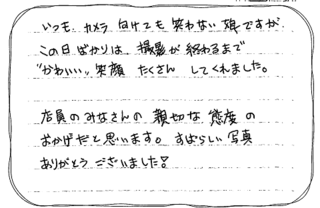 いつも カメラ 向けても 笑わない 娘ですが、
この日ばかりは 撮影が 終わるまで
"かわいい" 笑顔 たくさん してくれました。
店員のみなさんの 親切な 態度の
おかげだと思います。すばらしい 写真
ありがとう ございました!